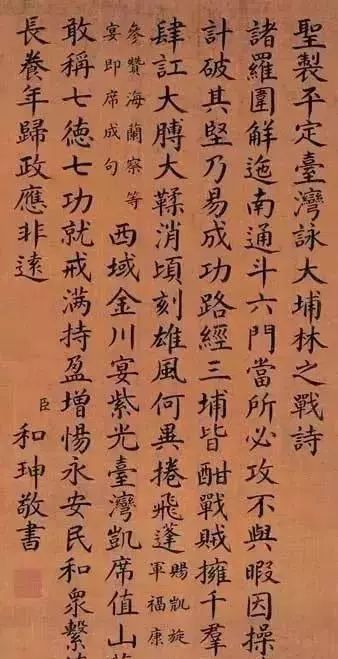 聖製平定臺灣詠大埔林之戰詩
諸羅圍解迤南通斗六門當所必攻不與暇因操
計破其堅乃易成功路經三埔皆酣戰賊擁千羣
肆訌大膊大鞣消頃刻雄風何異捲飛蓬 賜凱旋軍福康
參贊海蘭察等
宴即席成句
西域金川宴紫光臺灣凱席值山
敢稱七德七功就戒滿持盈增惕永安民和衆繫
長養年歸政應非遠
臣 和珅敬書